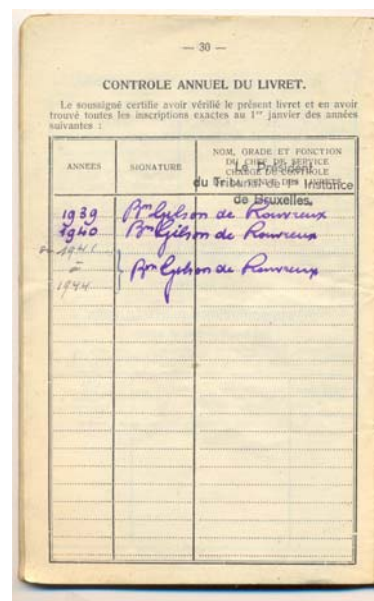 — 30 —
CONTROLE ANNUEL DU LIVRET.
Le soussigné certifie avoir vérifié le présent livret et en avoir
trouvé toutes les inscriptions exactes au 1er janvier des années
suivantes :
ANNEES
SIGNATURE
NOM, GRADE ET FONCTION
DU CHEF DE SERVICE
CHARGÉ DU CONTROLE
DE LA TENUE DES LIVRETS
Le Président
du Tribunal de 1re Instance
de Bruxelles,
1939 Bon Gilson de Rouvreux
1940 Bon Gilson de Rouvreux
1941
à
1944
Bon Gilson de Rouvreux